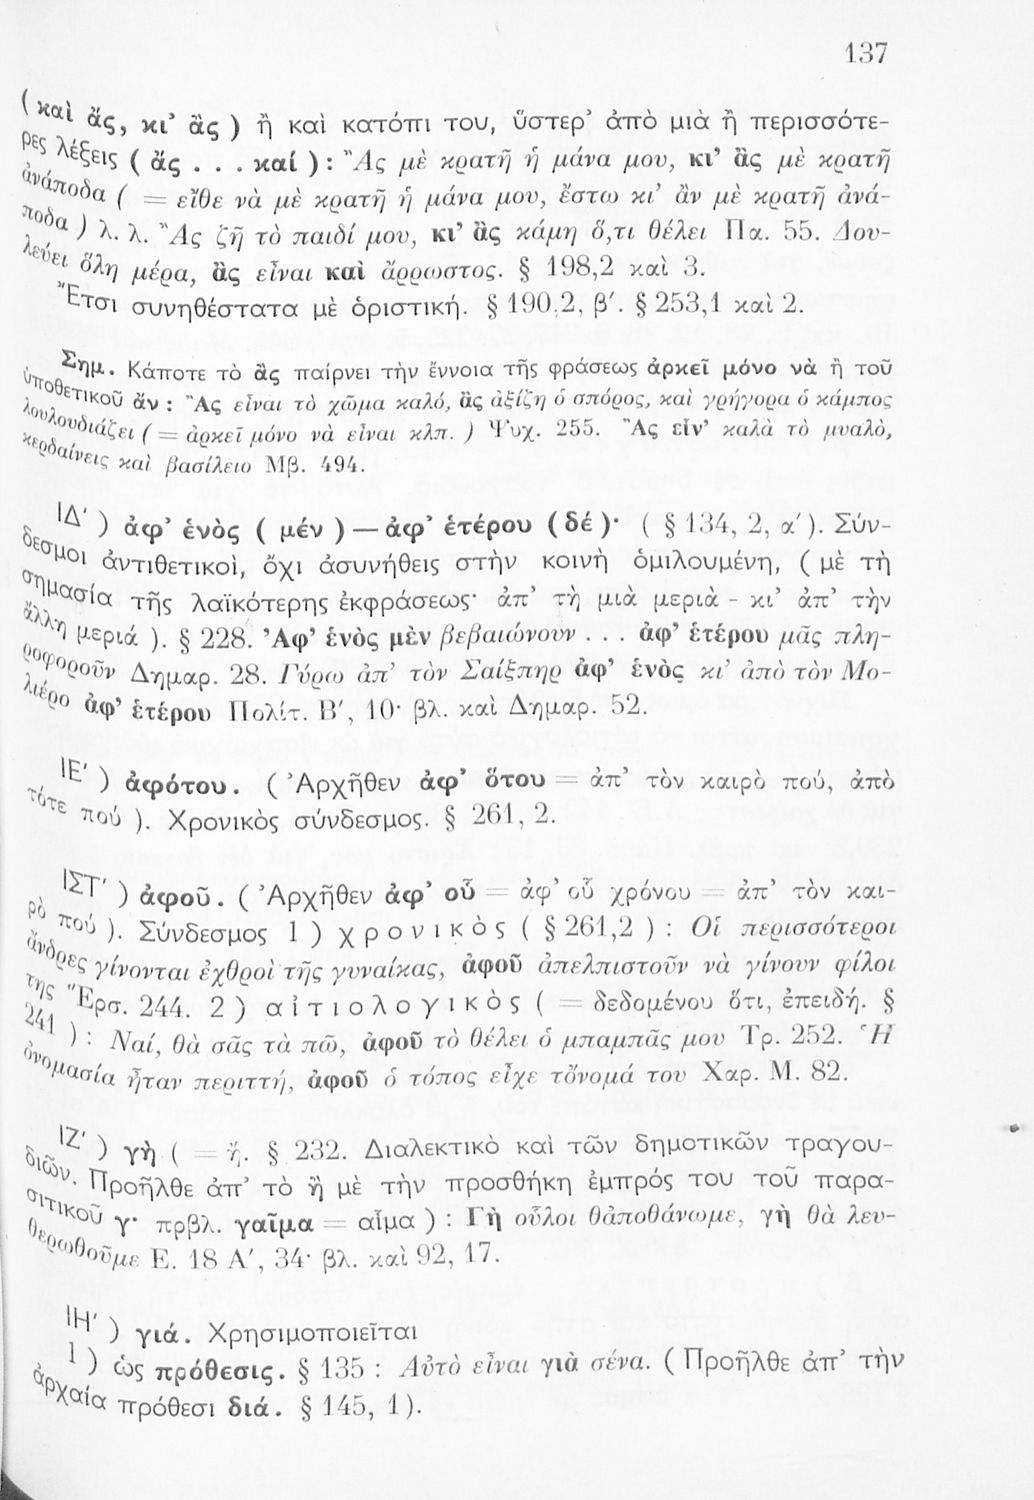 137
(καὶ ἄς, κι’ ἂς) ἢ καὶ κατόπι του, ὕστερ’ ἀπὸ μιὰ ἢ περισσότε-
ρες λέξεις (ἄς . . . καί): Ἂς μὲ κρατῆ ἡ μάνα μου, κι’ ἂς μὲ κρατῆ
ἀνάποδα ( = εἴθε νὰ μὲ κρατῆ ἡ μάνα μου, ἔστω κι’ ἂν μὲ κρατῆ ἀνά-
ποδα ) λ. λ. Ἂς ζῆ τὸ παιδί μου, κι’ ἂς κάμη ὅ,τι θέλει Πα. 55. Δου-
λεύει ὅλη μέρα, ἂς εἶναι καὶ ἄρρωστος. § 198,2 καὶ 3.
Ἔτσι συνηθέστατα μὲ ὁριστική. § 190,2, β′. § 253,1 καὶ 2.
Σημ. Κάποτε τὸ ἂς παίρνει τὴν ἔννοια τῆς φράσεως ἀρκεῖ μόνο νὰ ἢ τοῦ
ὑποθετικοῦ ἄν: Ἂς εἶναι τὸ χῶμα καλό, ἂς ἀξίζη ὁ σπόρος, καὶ γρήγορα ὁ κάμπος
λουλουδιάζει ( = ἀρκεῖ μόνο νὰ εἶναι κλπ. ) Ψυχ. 255. Ἂς εἶν’ καλὰ τὸ μυαλὸ,
κερδαίνεις καὶ βασίλειο Μβ. 494.
ΙΔ′ ) ἀφ’ ἑνὸς ( μέν ) — ἀφ’ ἑτέρου (δέ)· ( § 134, 2, α′). Σύν-
δεσμοι ἀντιθετικοὶ, ὄχι ἀσυνήθεις στὴν κοινὴ ὁμιλουμένη, ( μὲ τὴ
σημασία τῆς λαϊκότερης ἐκφράσεως· ἀπ’ τὴ μιὰ μεριὰ - κι’ ἀπ’ τὴν
ἄλλη μεριά ). § 228. Ἀφ’ ἑνὸς μὲν βεβαιώνουν . . . ἀφ’ ἑτέρου μᾶς πλη-
ροφοροῦν Δημαρ. 28. Γύρω ἀπ’ τὸν Σαίξπηρ ἀφ’ ἑνὸς κι’ ἀπὸ τὸν Μο-
λιέρο ἀφ’ ἑτέρου Πολίτ. Β′, 10· βλ. καὶ Δημαρ. 52.
ΙΕ′ ) ἀφότου. ( Ἀρχῆθεν ἀφ’ ὅτου = ἀπ’ τὸν καιρὸ πού, ἀπὸ
τότε πού ). Χρονικὸς σύνδεσμος. § 261, 2.
ΙΣΤ′ ) ἀφοῦ. ( Ἀρχῆθεν ἀφ’ οὗ = ἀφ’ οὗ χρόνου = ἀπ’ τὸν και-
ρὸ πού ). Σύνδεσμος 1 ) χρονικὸς ( § 261,2 ) : Οἱ περισσότεροι
ἄνδρες γίνονται ἐχθροὶ τῆς γυναίκας, ἀφοῦ ἀπελπιστοῦν νὰ γίνουν φίλοι
της Ἔρσ. 244. 2 ) αἰτιολογικὸς ( = δεδομένου ὅτι, ἐπειδή. §
241 ) : Ναί, θὰ σᾶς τὰ πῶ, ἀφοῦ τὸ θέλει ὁ μπαμπᾶς μου Τρ. 252. Ἡ
ὀνομασία ἦταν περιττή, ἀφοῦ ὁ τόπος εἶχε τὄνομά του Χαρ. Μ. 82.
ΙΖ′ ) γὴ ( = ἤ. § 232. Διαλεκτικὸ καὶ τῶν δημοτικῶν τραγου-
διῶν. Προῆλθε ἀπ’ τὸ ἢ μὲ τὴν προσθήκη ἐμπρός του τοῦ παρα-
σιτικοῦ γ· πρβλ. γαῖμα = αἷμα ) : Γὴ οὗλοι θἀποθάνωμε, γὴ θὰ λευ-
θερωθοῦμε Ε. 18 Α′, 34· βλ. καὶ 92, 17.
ΙΗ′ ) γιά. Χρησιμοποιεῖται
1 ) ὡς πρόθεσις. § 135 : Αὐτὸ εἶναι γιὰ σένα. ( Προῆλθε ἀπ’ τὴν
ἀρχαία πρόθεσι διά. § 145, 1).